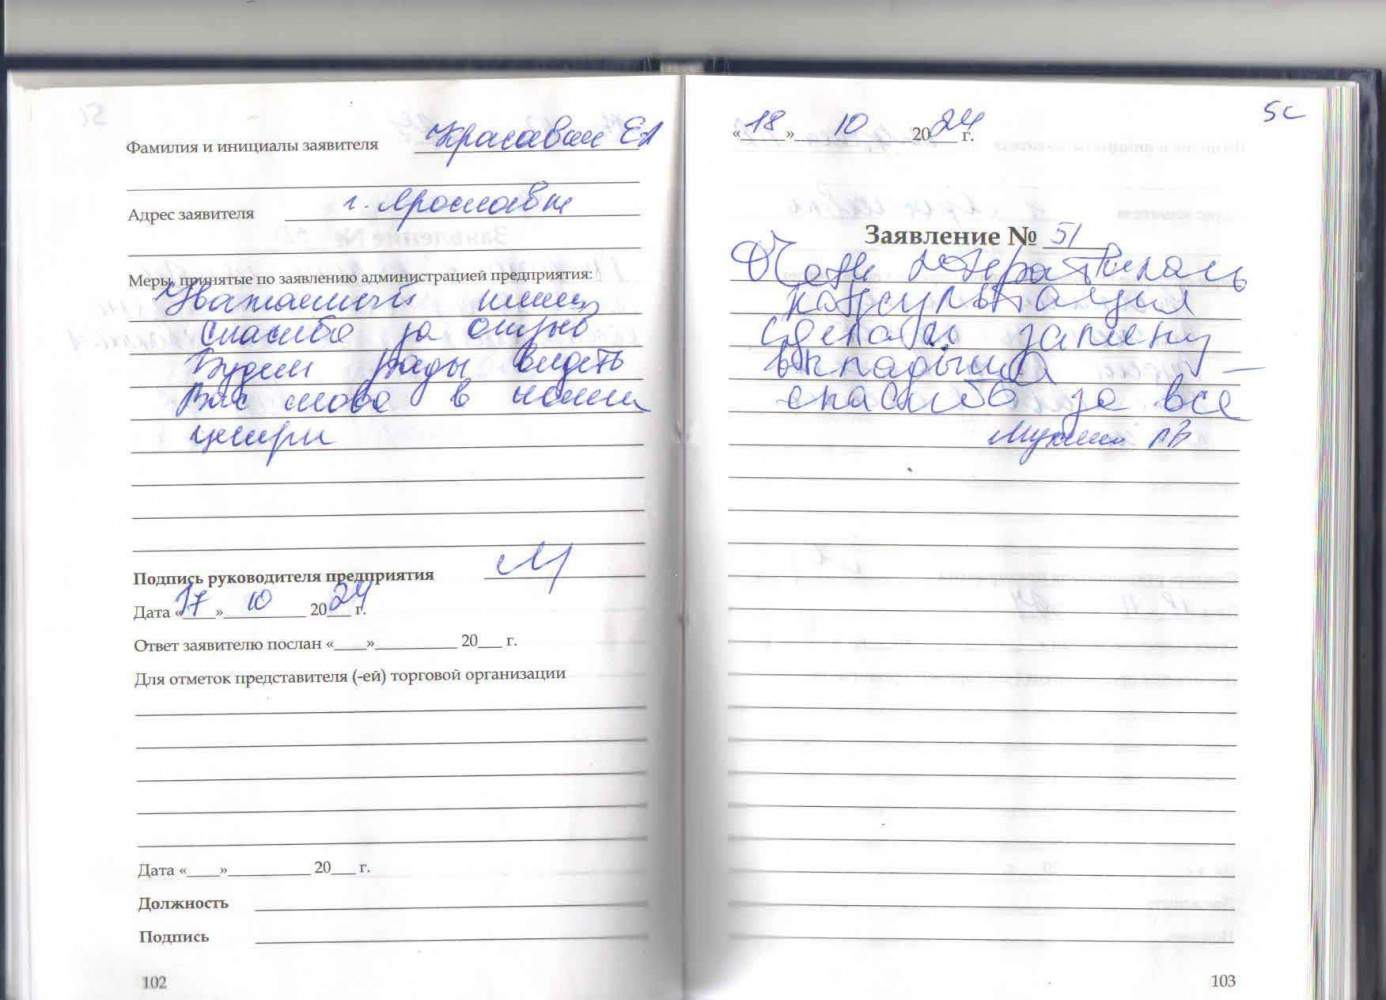 Фамилия и инициалы заявителя Красавин ЕА
Адрес заявителя г. Ярославль
Меры, принятые по заявлению администрацией предприятия:
Уважаемый клиент
спасибо за отзыв
Будем рады видеть
Вас снова в нашем
центре
Подпись руководителя предприятия
Дата «17» 10 2024 г.
Ответ заявителю послан «___»_________ 20___ г.
Для отметок представителя (-ей) торговой организации
Дата «____»_________ 20___ г.
Должность
Подпись
102
«18» 10 2024 г.
Заявление № 51
Очень понравилась
консультация
сделали замену
вкладыша –
спасибо за все
103